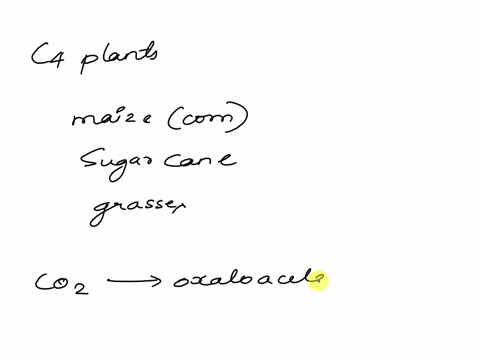 C4 plants
maize (corn)
Sugar cane
grasses
CO2 → oxaloaceta